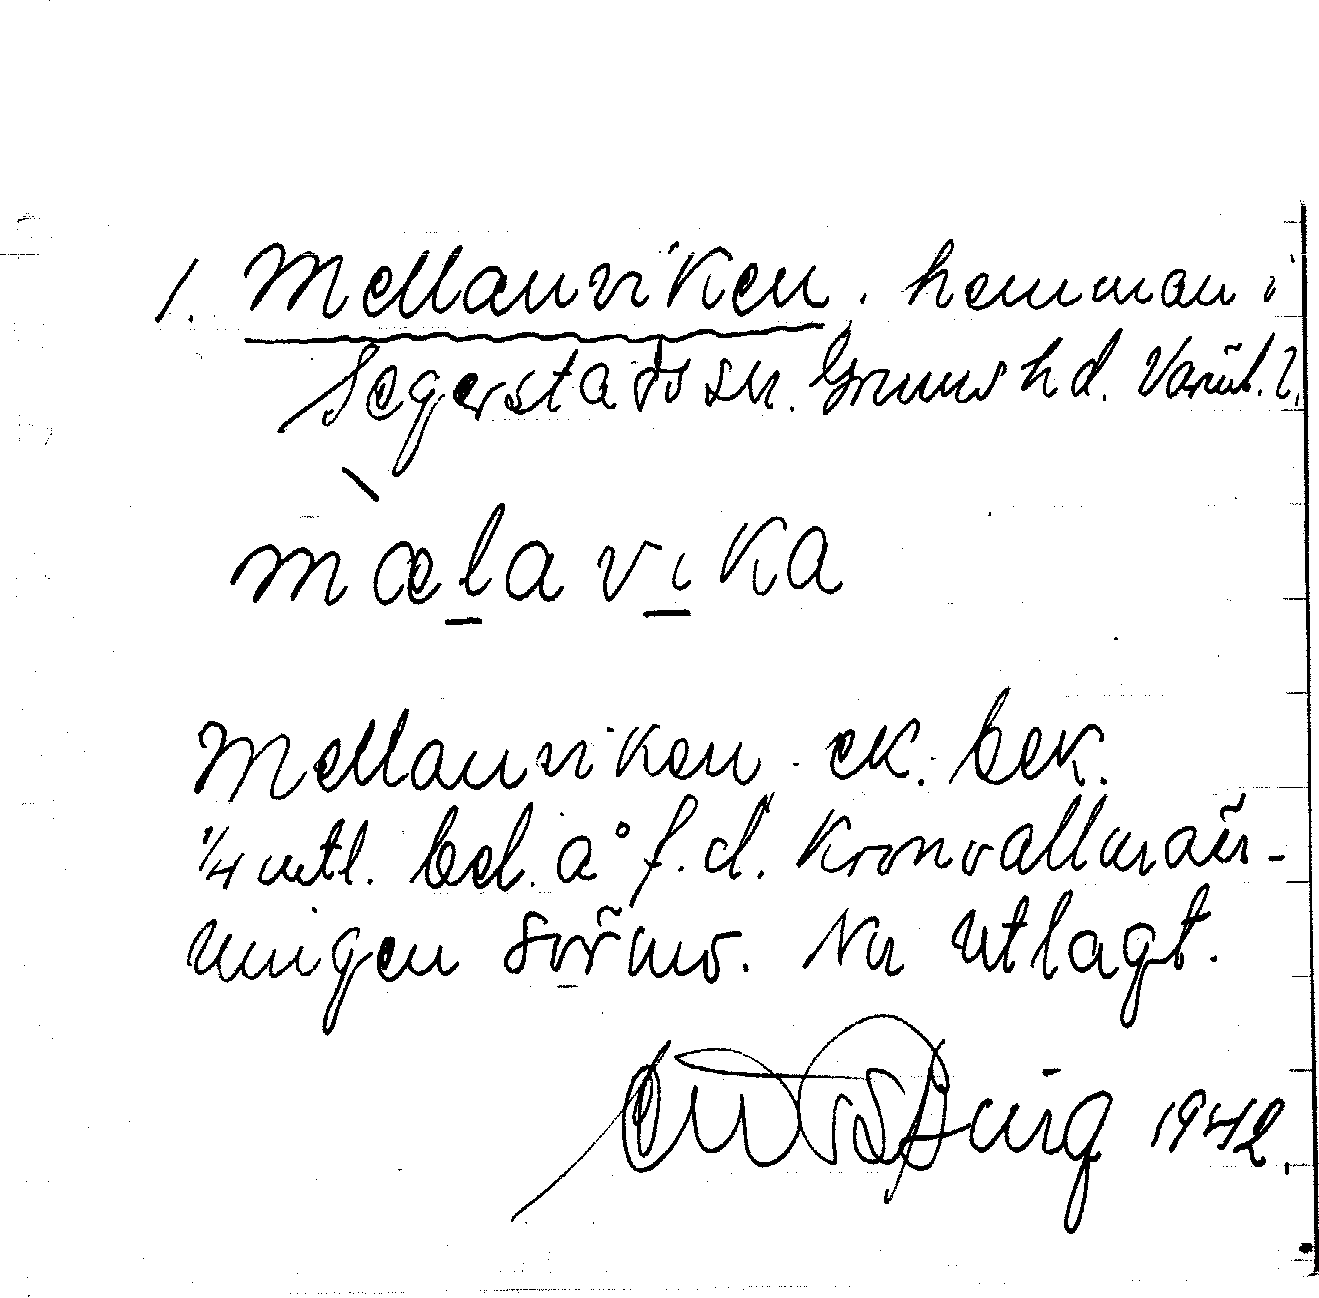 1. Mellanviken, hemman i
Segerstads sn. Grums hd. Värml. l.
mælavika
Mellanviken ek. bek.
1/4 mtl. bel. å f.d. Kronoallmän-
ningen Sörmo. Nu utlagt.
1942.